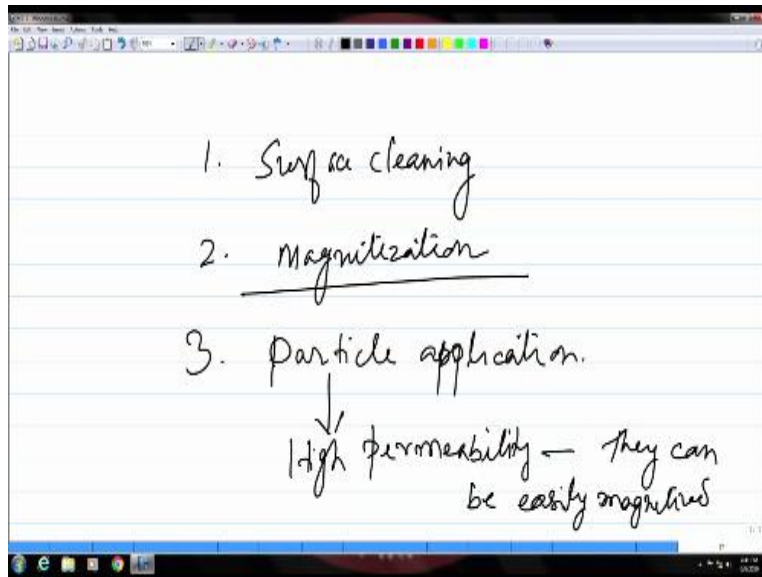 1. Surface cleaning
2. Magnitization
3. Particle application.
High permeability — They can
be easily magnetized